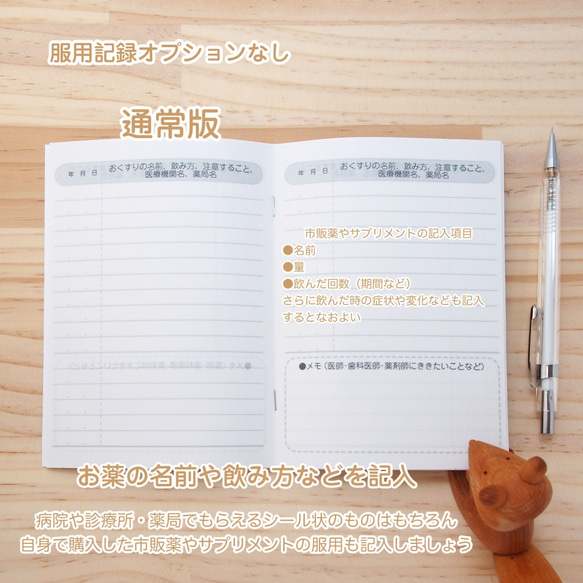 服用記録オプションなし
通常版
年 月 日
おくすりの名前、飲み方、注意すること、
医療機関名、薬局名
年 月 日
おくすりの名前、飲み方、注意すること、
医療機関名、薬局名
市販薬やサプリメントの記入項目
●名前
●量
●飲んだ回数（期間など）
さらに飲んだ時の症状や変化なども記入
するとなおよい
●メモ（医師・歯科医師・薬剤師にききたいことなど）
お薬の名前や飲み方などを記入
病院や診療所・薬局でもらえるシール状のものはもちろん
自身で購入した市販薬やサプリメントの服用も記入しましょう